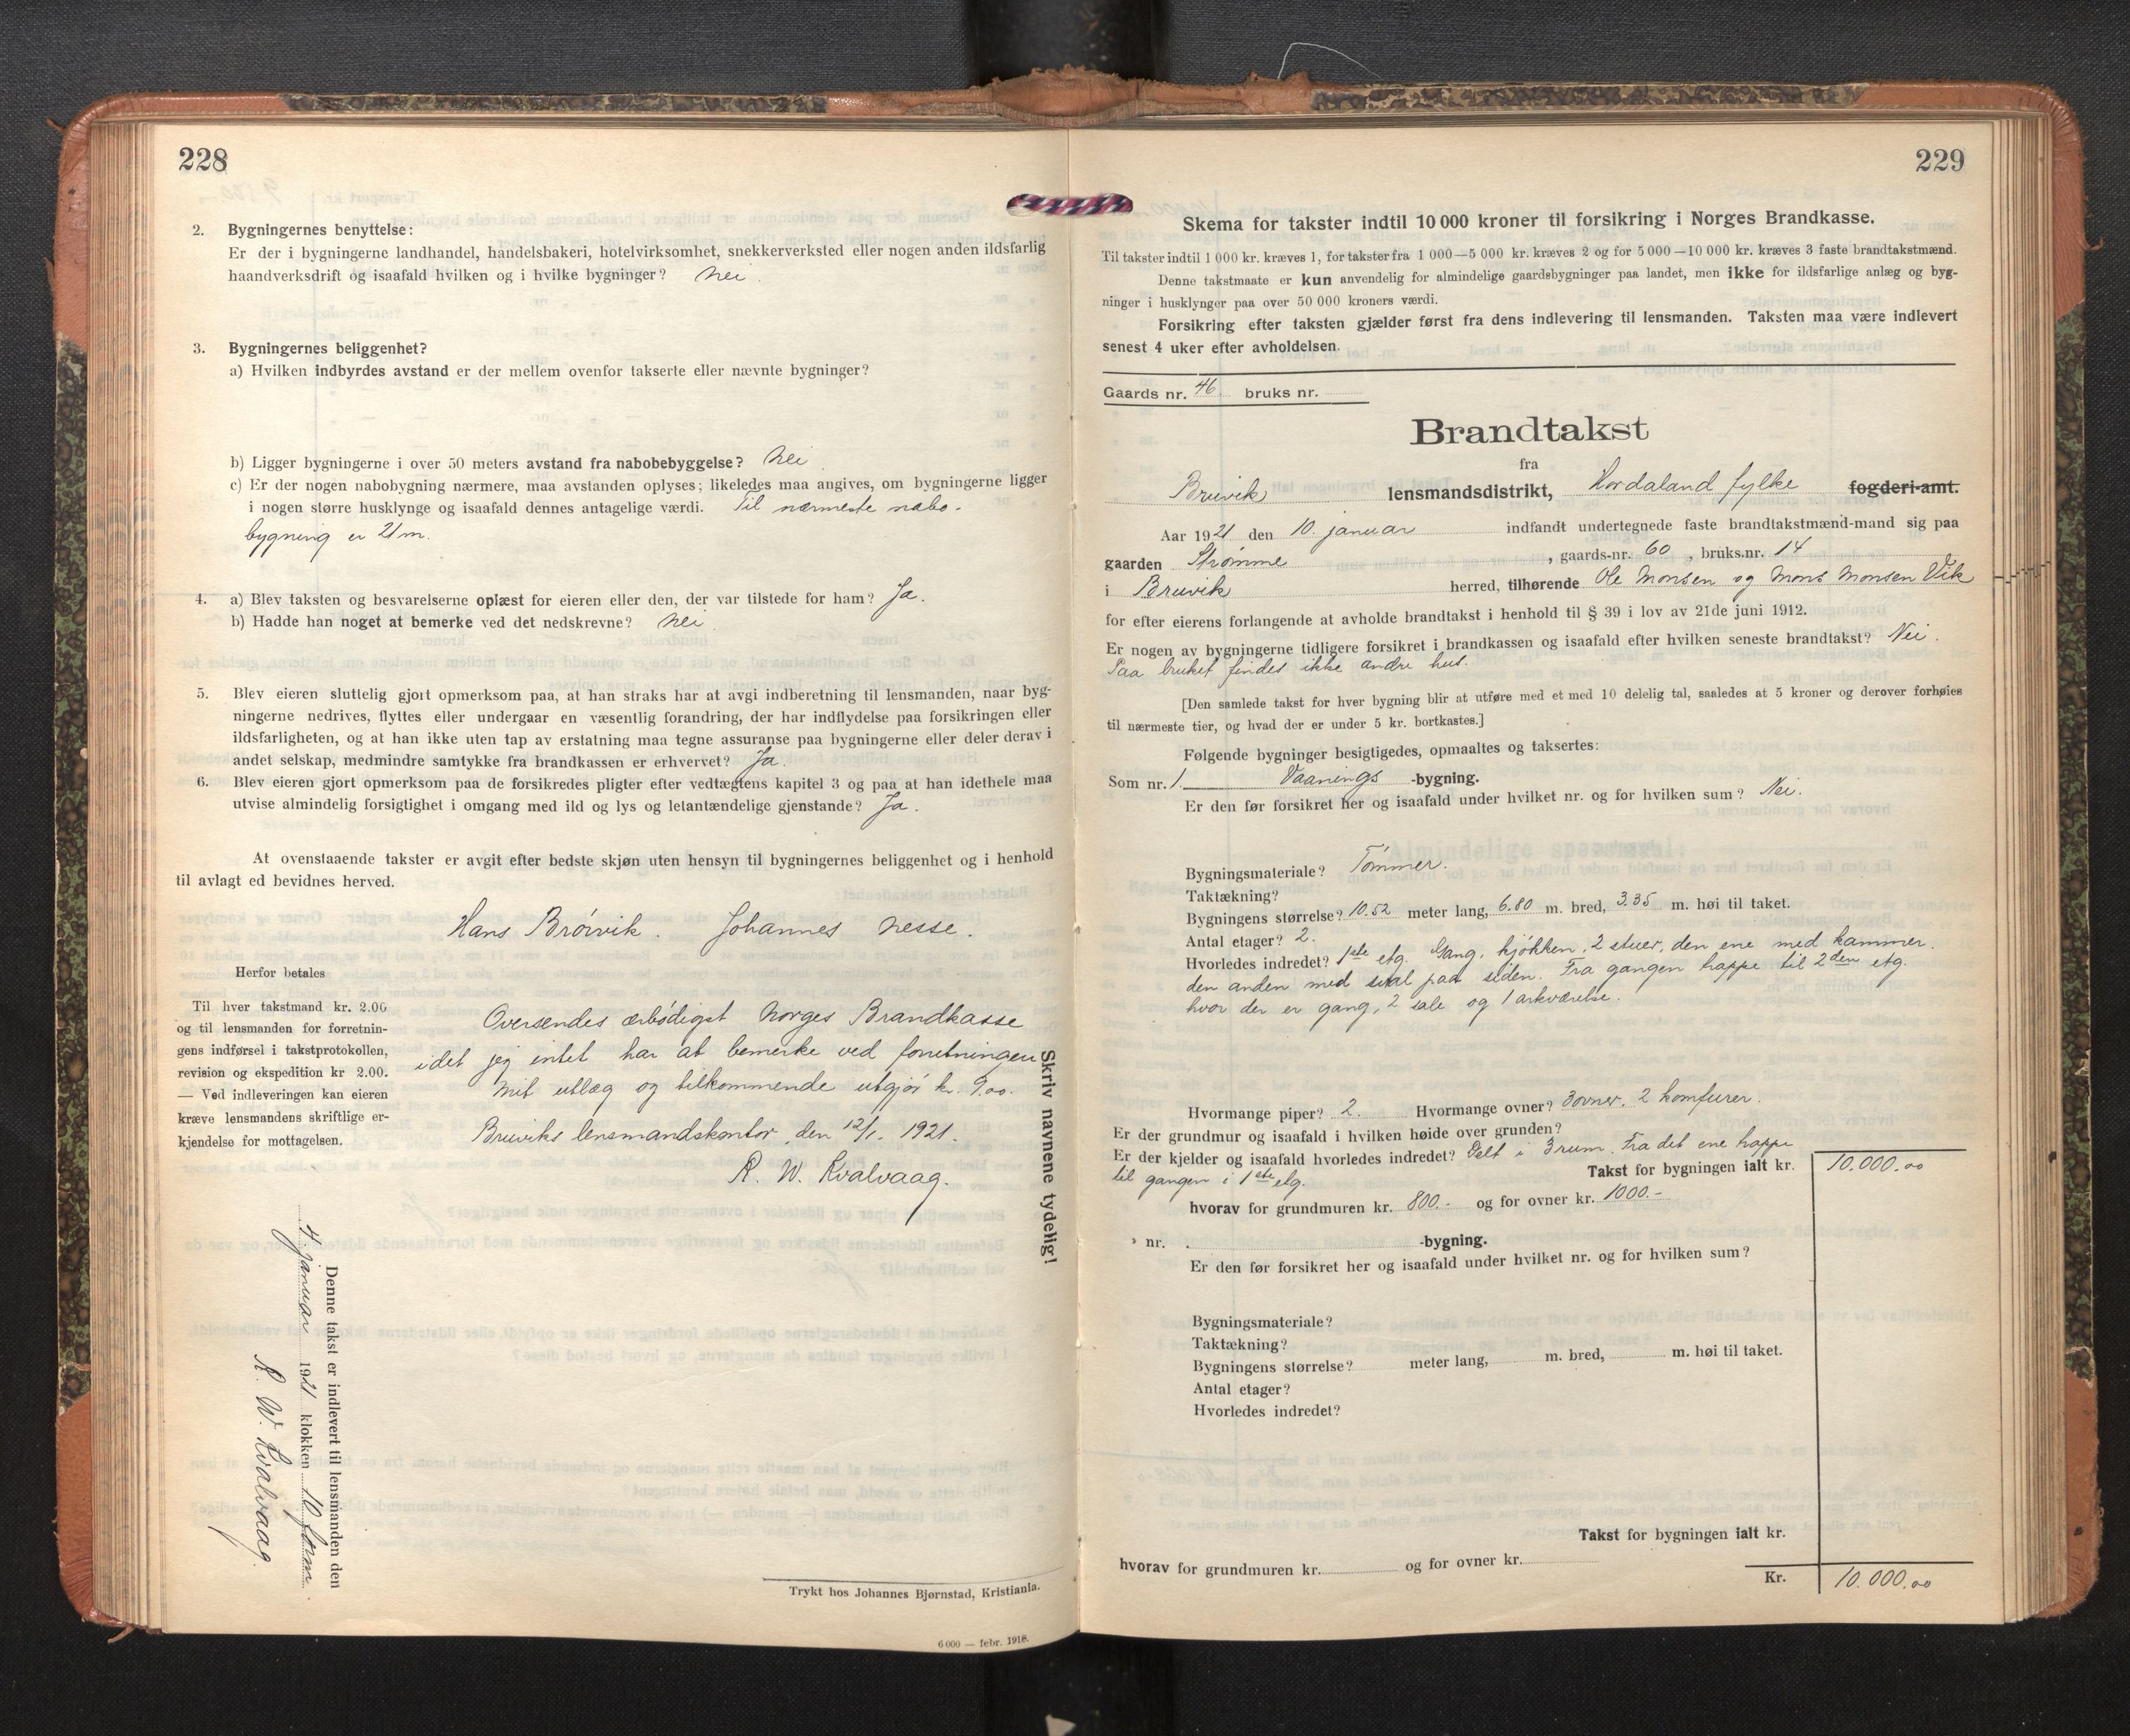 228
2. Bygningernes benyttelse:
Er der i bygningerne landhandel, handelsbakeri, hotelvirksomhet, snekkerverksted eller nogen anden ildsfarlig
haandverksdrift og isaafald hvilken og i hvilke bygninger? Nei.
3. Bygningernes beliggenhet?
a) Hvilken indbyrdes avstand er der mellem ovenfor takserte eller nævnte bygninger?
b) Ligger bygningerne i over 50 meters avstand fra nabobebyggelse? Nei.
c) Er der nogen nabobygning nærmere, maa avstanden oplyses; likeledes maa angives, om bygningerne ligger
i nogen større husklynge og isaafald dennes antagelige værdi. Til nærmeste nabo-
bygning er 21 m.
4. a) Blev taksten og besvarelserne oplæst for eieren eller den, der var tilstede for ham? Ja.
b) Hadde han noget at bemerke ved det nedskrevne? Nei.
5. Blev eieren sluttelig gjort opmerksom paa, at han straks har at avgi indberetning til lensmanden, naar byg-
ningerne nedrives, flyttes eller undergaar en væsentlig forandring, der har indflydelse paa forsikringen eller
ildsfarligheten, og at han ikke uten tap av erstatning maa tegne assuranse paa bygningerne eller deler derav i
andet selskap, medmindre samtykke fra brandkassen er erhvervet? Ja.
6. Blev eieren gjort opmerksom paa de forsikredes pligter efter vedtægtens kapitel 3 og paa at han idethele maa
utvise almindelig forsigtighet i omgang med ild og lys og letantændelige gjenstande? Ja.
At ovenstaaende takster er avgit efter bedste skjøn uten hensyn til bygningernes beliggenhet og i henhold
til avlagt ed bevidnes herved.
Hans Brörvik. Johannes Nesse.
Herfor betales
Til hver takstmand kr. 2.00
og til lensmanden for forretnin-
gens indførsel i takstprotokollen,
revision og ekspedition kr 2.00.
— Ved indleveringen kan eieren
kræve lensmandens skriftlige er-
kjendelse for mottagelsen.
Oversendes ærbödigst Norges Brandkasse
idet jeg intet har at bemerke ved forretningen
Mit utlæg og tilkommende utgjör kr. 9.00.
Bruviks lensmandskontor, den 12/1. 1921.
R. W. Kvalvaag.
Skriv navnene tydelig!
Denne takst er indlevert til lensmanden den
4 januar 1921 klokken 10 form.
R. W. Kvalvaag.
Trykt hos Johannes Bjørnstad, Kristiania.
6 000 — febr. 1918.
229
Skema for takster indtil 10 000 kroner til forsikring i Norges Brandkasse.
Til takster indtil 1 000 kr. kræves 1, for takster fra 1 000—5 000 kr. kræves 2 og for 5 000—10 000 kr. kræves 3 faste brandtakstmænd.
Denne takstmaate er kun anvendelig for almindelige gaardsbygninger paa landet, men ikke for ildsfarlige anlæg og byg-
ninger i husklynger paa over 50 000 kroners værdi.
Forsikring efter taksten gjælder først fra dens indlevering til lensmanden. Taksten maa være indlevert
senest 4 uker efter avholdelsen.
Gaards nr. 46 bruks nr.
Brandtakst
fra
Bruvik lensmandsdistrikt, Hordaland fylke fogderi-amt.
Aar 1921 den 10. januar indfandt undertegnede faste brandtakstmænd-mand sig paa
gaarden Strømme, gaards-nr. 60, bruks.nr. 14
i Bruvik herred, tilhørende Ole Monsen og Mons Monsen Vik
for efter eierens forlangende at avholde brandtakst i henhold til § 39 i lov av 21de juni 1912.
Er nogen av bygningerne tidligere forsikret i brandkassen og isaafald efter hvilken seneste brandtakst? Nei.
Paa bruket findes ikke andre hus.
[Den samlede takst for hver bygning blir at utføre med et med 10 delelig tal, saaledes at 5 kroner og derover forhøies
til nærmeste tier, og hvad der er under 5 kr. bortkastes.]
Følgende bygninger besigtigedes, opmaaltes og taksertes:
Som nr. 1. Vaanings -bygning.
Er den før forsikret her og isaafald under hvilket nr. og for hvilken sum? Nei.
Bygningsmateriale? Tömmer.
Taktækning?
Bygningens størrelse? 10.52 meter lang, 6.80 m. bred, 3.35 m. høi til taket.
Antal etager? 2.
Hvorledes indredet? 1ste etg. Gang, kjökken, 2 stuer, den ene med kammer.
den anden med sval paa siden. Fra gangen trappe til 2den etg.
hvor der er gang, 2 sale og 1 arkværelse.
Hvormange piper? 2. Hvormange ovner? 3 ovner. 2 komfurer.
Er der grundmur og isaafald i hvilken høide over grunden?
Er der kjelder og isaafald hvorledes indredet? Delt i 3 rum. Fra det ene trappe
til gangen i 1ste etg.
Takst for bygningen ialt kr. 10.000.00
hvorav for grundmuren kr. 800.- og for ovner kr. 1000.-
» nr. -bygning.
Er den før forsikret her og isaafald under hvilket nr. og for hvilken sum?
Bygningsmateriale?
Taktækning?
Bygningens størrelse? meter lang, m. bred, m. høi til taket.
Antal etager?
Hvorledes indredet?
Takst for bygningen ialt kr.
hvorav for grundmuren kr. og for ovner kr.
Kr. 10.000.00